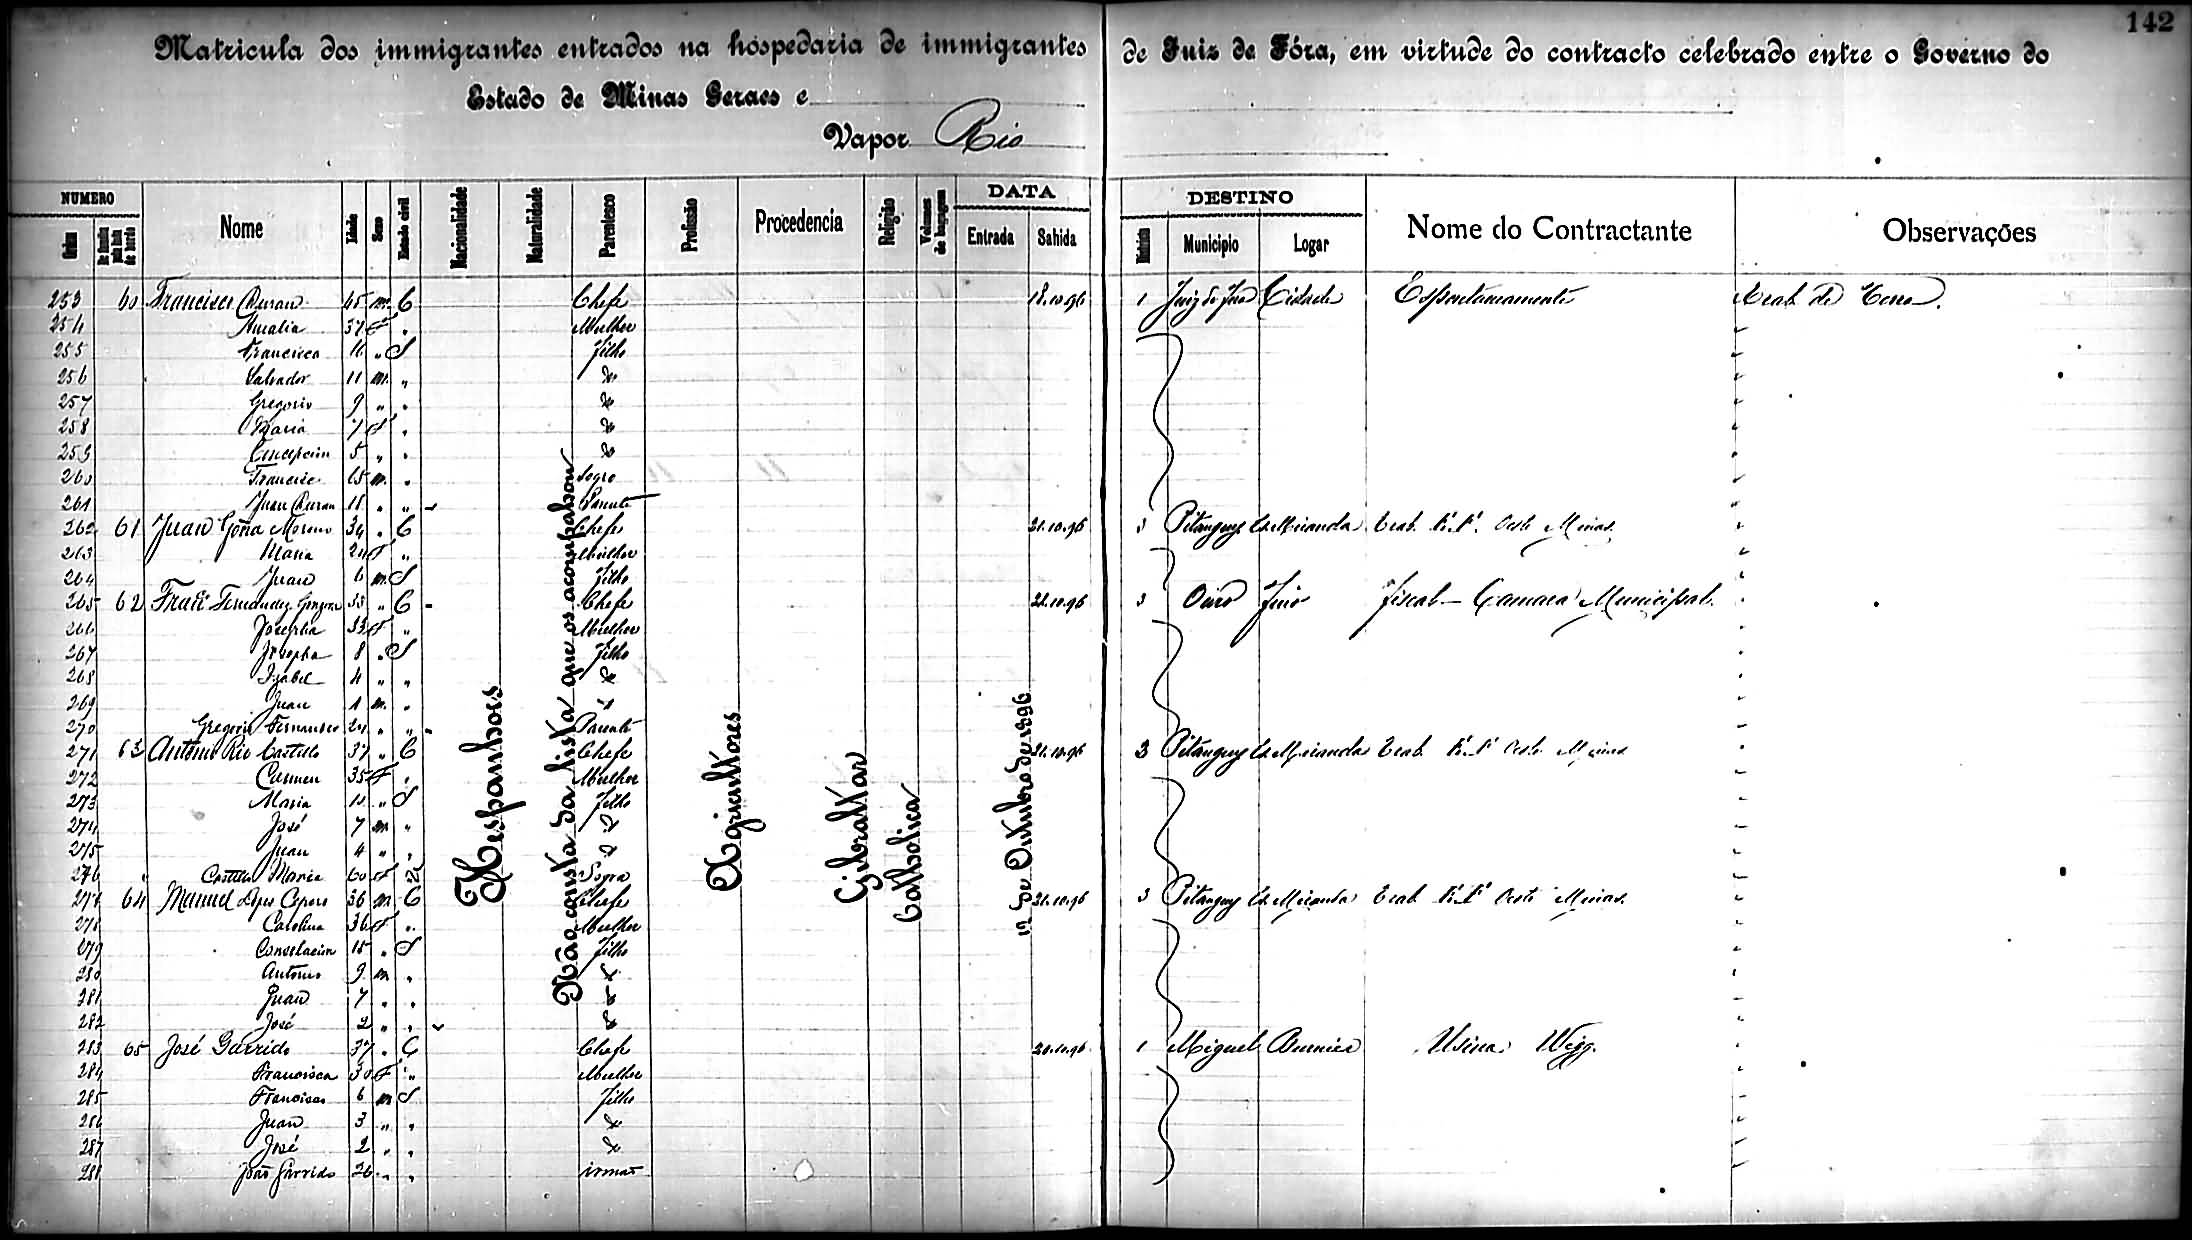 142
Matricula dos immigrantes entrados na hospedaria de immigrantes de Juiz de Fóra, em virtude do contracto celebrado entre o Governo do
Estado de Minas Geraes e
Vapor Rio
NUMERO Nome Idade Sexo Estado civil Nacionalidade Naturalidade Parentesco Profissão Procedencia Religião Volumes de bagagem DATA DESTINO Nome do Contractante Observações
Ordem Entrada Sahida Municipio Logar
253 60 Francisco Duran 65 m. C Chefe 18.10.96 1 Juiz de Fora Cidade Espontaneamente
254 Amalia 37 F " Mulher
255 Francisca 16 " S Filho
256 Salvador 11 m. "
257 Gregorio 9 " "
258 Maria 7 F "
259 Concepcion 5 " "
260 65 m. " Sogro
261 Juan Duran 18 " " Parente
262 61 Juan Moreno 34 " C Chefe 21.10.96 3 Pitanguy Trab. Oeste Minas
263 Maria 24 F " Mulher
264 Juan 6 m. S Filho
265 62 Fernandez 33 " C Chefe 21.10.96 3 Ouro Fino Fiscal - Camara Municipal
266 Josepha 33 F " Mulher
267 Josepha 8 " S Filho
268 Izabel 4 " "
269 Juan 1 m. "
270 Gregorio 24 " " Parente
271 63 Antonio Rio Castillo 37 " C Chefe 21.10.96 3 Pitanguy Trab. Oeste Minas
272 Carmen 35 F " Mulher
273 Maria " S Filho
274 José 7 m. "
275 Juan 4 " "
276 " Castillo Maria 60 F Sogra
277 64 Manuel Lopes 36 m. C Chefe 21.10.96 3 Pitanguy Trab. Oeste Minas
278 Carolina 36 F " Mulher
279 15 " S Filho
280 Antonio 9 m "
281 Juan 7 " "
282 José 2 " "
283 65 José Garrido 37 " C Chefe 20.10.96 1 Miguel Burnier Usina Wigg.
284 Francisca 30 F " Mulher
285 Francisco 6 m S Filho
286 Juan 3 " "
287 José 2 " "
288 João Garrido 26 " " irmão
Hespanhoes
Não consta da lista que os acompanhou
Agricultores
Gibraltar
Catholica
19 de Outubro de 1896